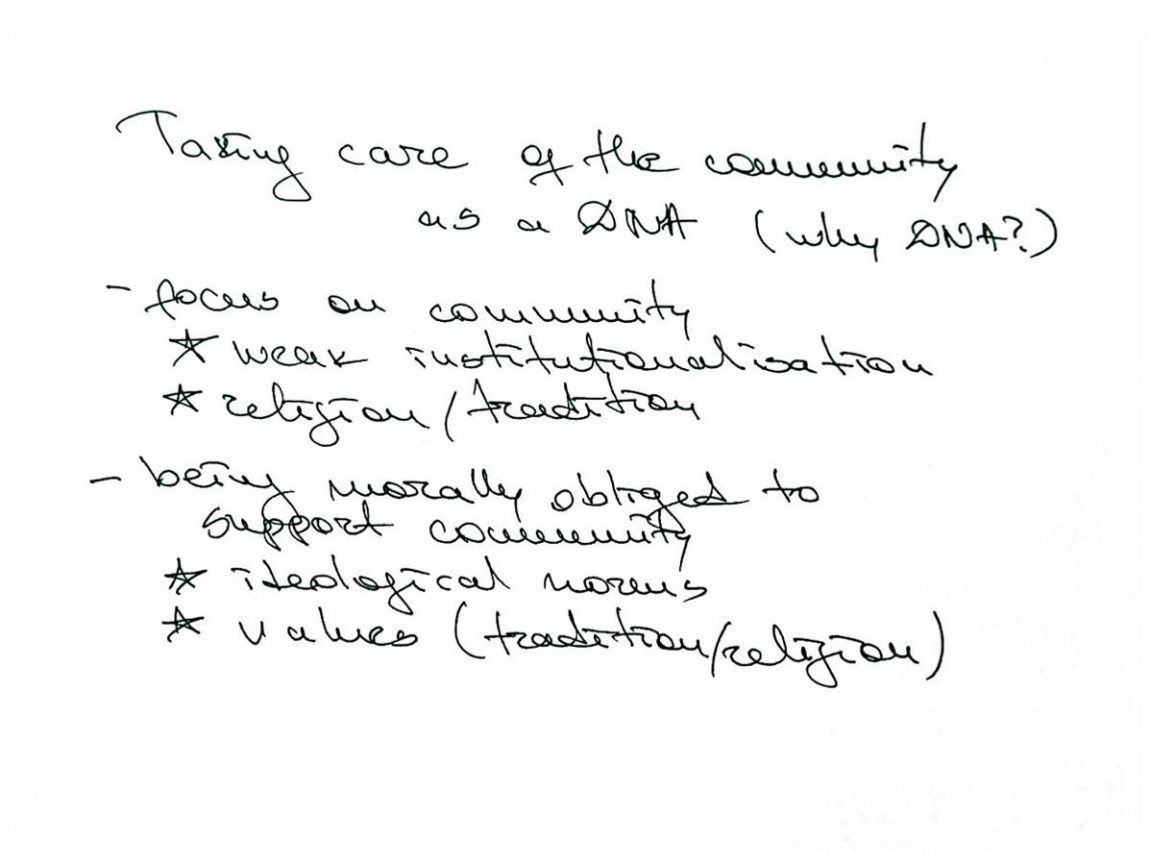 Taking care of the community
as a DNA (why DNA?)
- focus on community
* weak institutionalisation
* religion/tradition
- being morally obliged to
support community
* ideological norms
* values (tradition/religion)